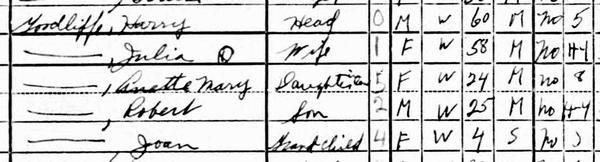 Goodliffe, Harry Head 0 M W 60 M no 5
———, Julia Wife 1 F W 58 M no H4
———, Mary Daughter 5 F W 24 M no 8
———, Robert Son 2 M W 25 M no H4
———, Joan Grand child 4 F W 4 S no